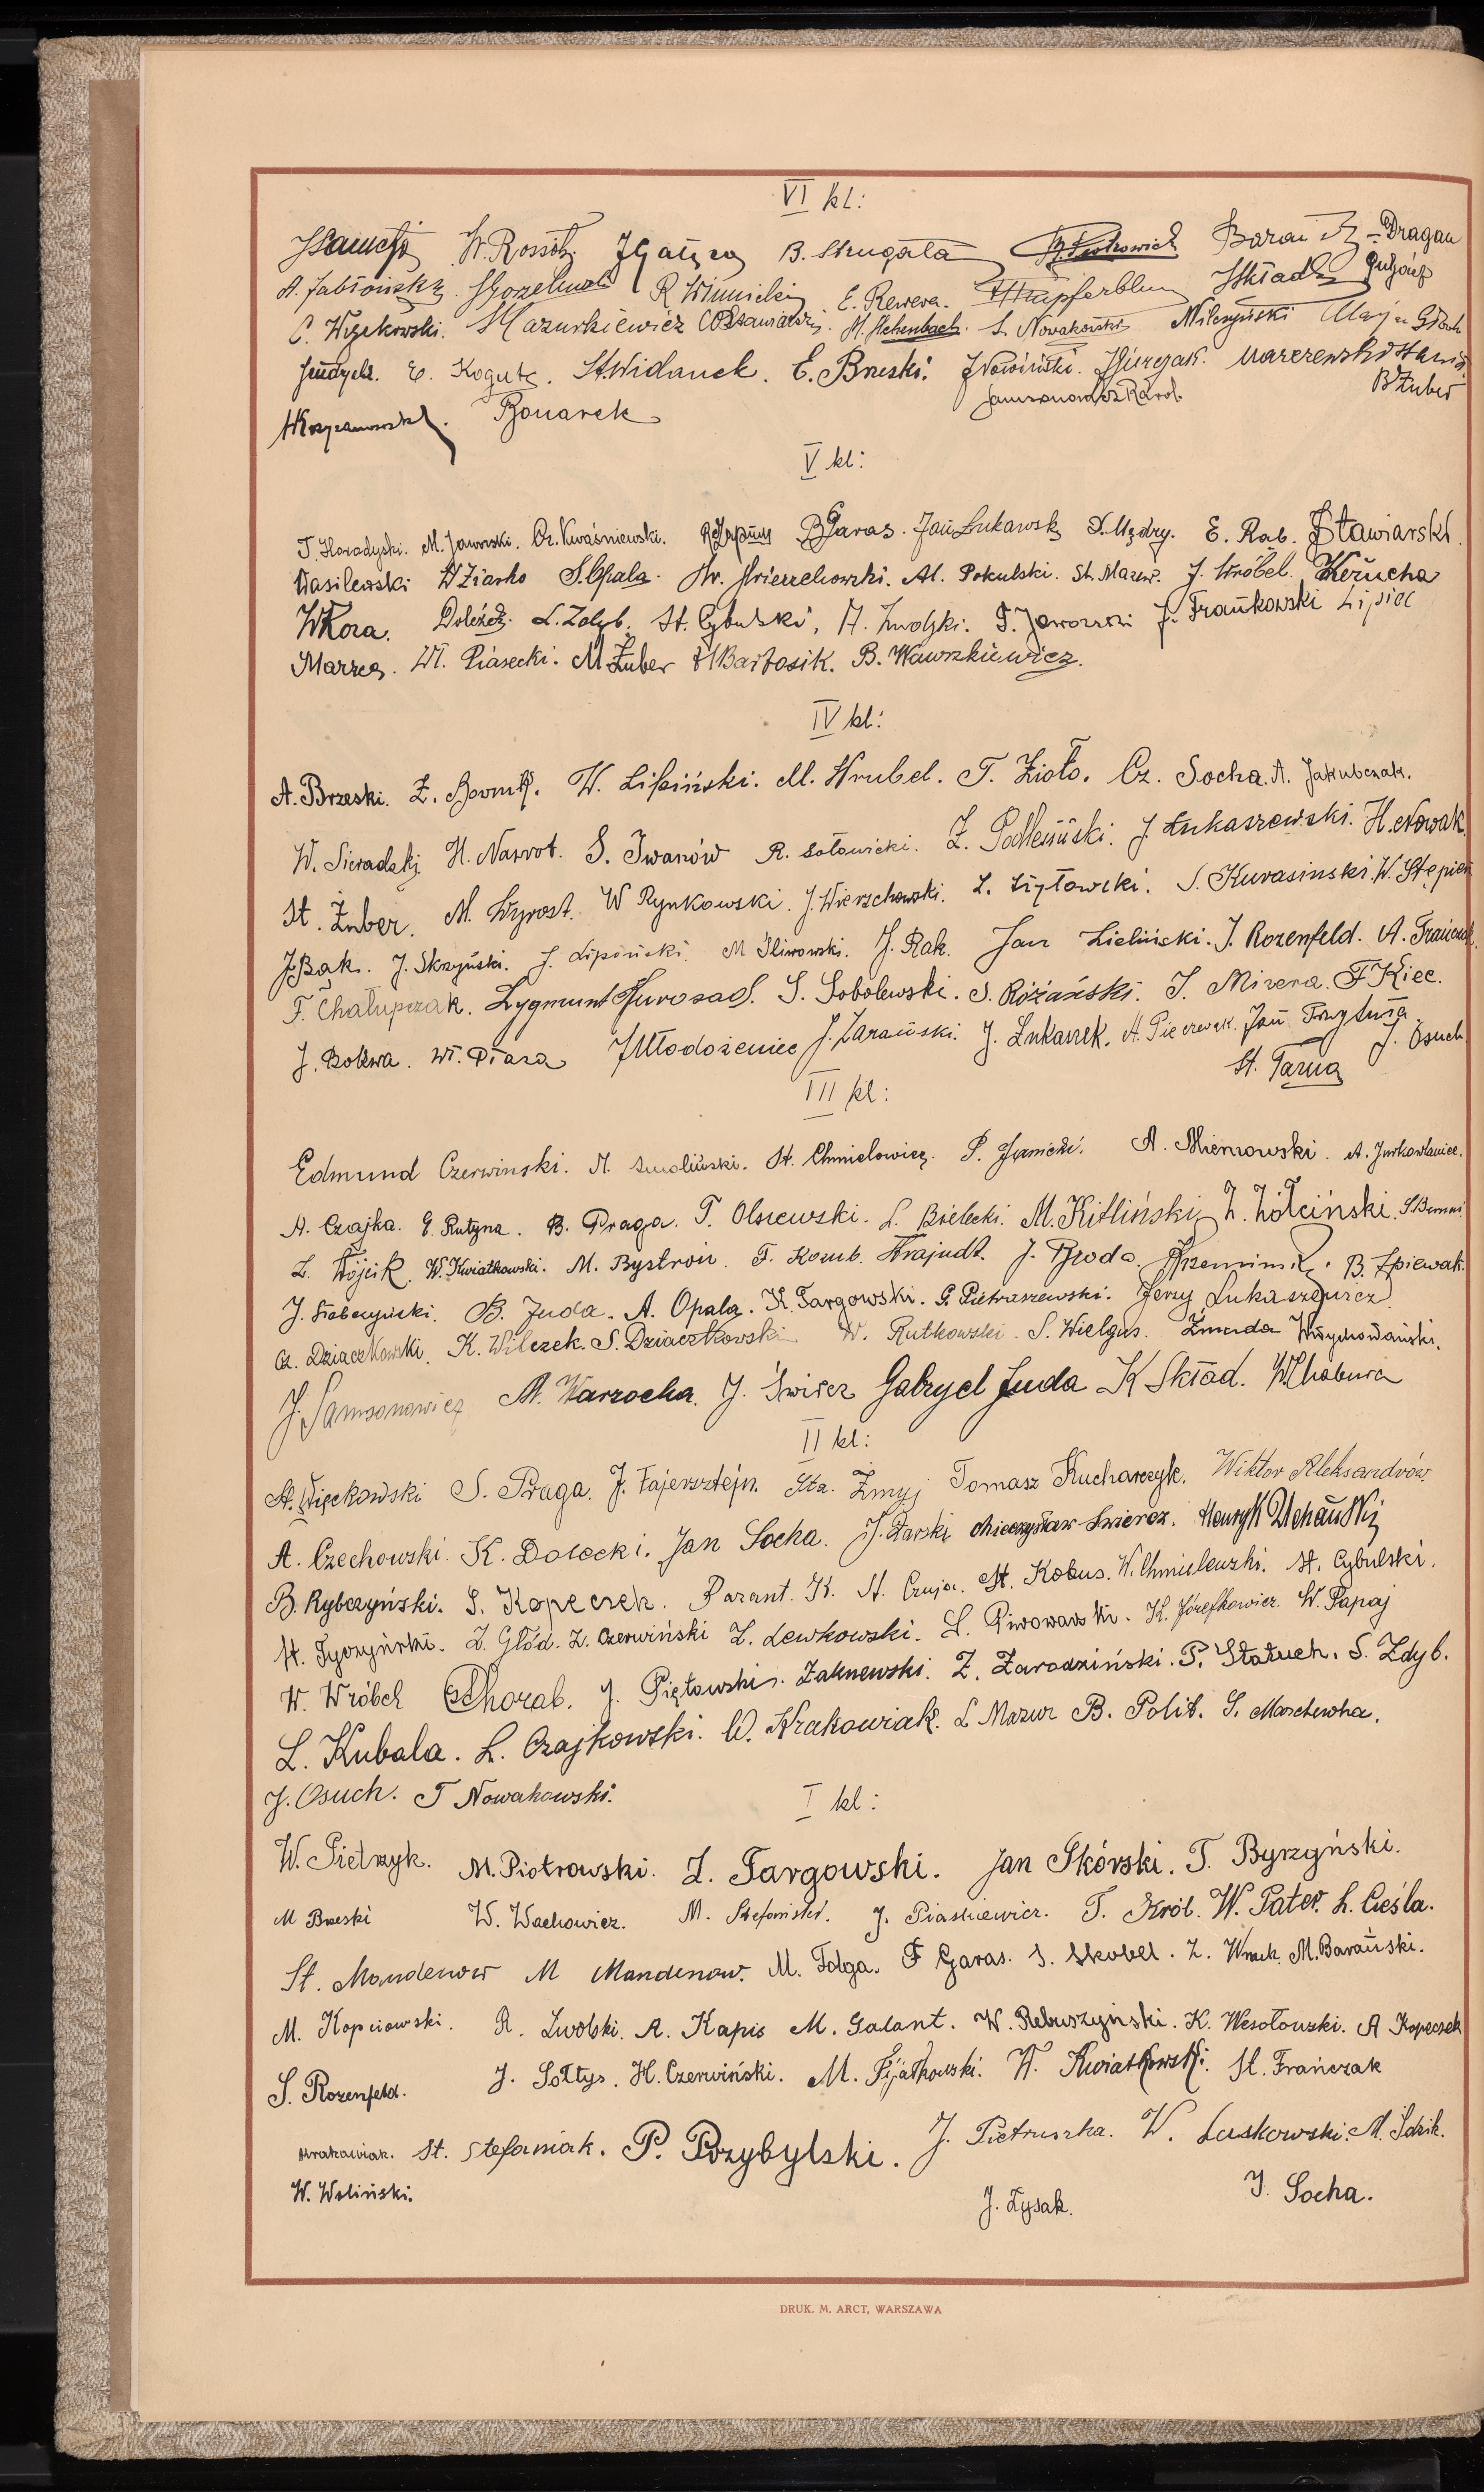 VI kl:
W. Rossoth B. Strugała Piotrowicz Baran Dragan
A. Jabłoński R Winnicki E. Rewera. Kupferblum JSkład
C. Wyrkowski. Mazurkiewicz S. Nowakowski Milczyński
E. Kogut. St.Widanek. E. Brzeski. JNowiński. BŻuber
Bonarek
V kl:
T. Horadyski. M. Jaworski. Cz. Kwaśniewski. BGaras. Jan Łukawski S. Mądry. E. Rab. Stawiarski.
Wasilewski WZiarko S.Opala. Al. Pokulski. St. Mazur. J. Wróbel. Kerucha
WKora. Doleżał. L. Zdyb. St. Cybulski, A. Zwolski. T. Jaworski J. Frankowski Lipiec
Marzec. Wł. Piasecki. M Żuber HBartosik. B. Wawszkiewicz.
IV kl:
A. Brzeski. W. Lipiński. M. Hrubel. T. Zioło. Cz. Socha. A. Jakubczak.
W. Sieradzki H. Nawrot. S. Iwanów R. Sołowicki. Z. Podlesiński. J. Łukaszewski. H. Nowak.
St. Żuber. M. Wyrost. W Rynkowski. J. Wierzchowski. S. Kurasinski. W. Stępień
J.Bąk. J. Skrzyński. J. Lipiński. M Śliwowski. J. Rak. Jan Zieliński. J. Rozenfeld. A. Frańczak.
F. Chałupczak. Zygmunt Jurosad. S. Sobolewski. S. Różański. J. Mirera. F Kiec.
J. Bolewa. Wł. Ptasa JMłodożeniec J. Zarański. J. Łukaszek. A. Pieczewak. Jan Przytuła. J. Osuch
St. Tarna
III kl:
Edmund Czerwinski. M. Smoliński. St. Chmielowiec. P. Janicki. A. Niemowski. A. Jurkowlaniec.
A. Czajka. E. Rutyna. B. Praga. T. Olszewski. L. Bielecki. M. Kitliński Z. Żółciński.
Z. Wójcik. W. Kwiatkowski. M. Bystroń. F. Komb. Krajudt. J. Broda. Krzemiński. B. Śpiewak.
J. Słabczyński. B. Juda. A. Opala. K. Targowski. G. Pietraszewski. Jerzy Łukaszewicz
Cz. Dziaczkowski. K. Wilczek. S. Dziaczkowski W. Rutkowski. S. Wielgus. Żmuda Wł.Wychowański.
J. Samsonowicz M. Warzocha. J. Świrz Gabryel Juda K Skład. W.Chabura
II kl:
A. Więckowski S. Praga. J. Fajersztejn. Sta. Żmyj Tomasz Kucharczyk. Wiktor Aleksandrów.
A. Czechowski. K. Dołecki. Jan Socha. J. Żarski Mieczysław Świercz. Henryk Uchański
B. Rybczyński. S. Kopeczek. Barant. K. A. Czuja. St. Kobus. W. Chmielewski. St. Cybulski.
St. Tyczyński. Z. Głód. Z. Czerwiński Z. Lewkowski. S. Piwowarski. K. Józefkowicz. W. Papaj
W. Wróbel Chorab. J. Piętowski. Zalinewski. Z. Zarodziński. P. Statuch. S. Zdyb.
L. Kubala. L. Czajkowski. W. Krakowiak. L Mazur B. Polit. S. Marchewka.
J. Osuch. T Nowakowski.
I kl:
W. Pietrzyk. M. Piotrowski. Z. Targowski. Jan Skórski. T. Byrzyński.
M Brzeski W. Wachowicz. M. Stefański. J. Piasniewicz. T. Król. W. Pater. L. Cieśla.
St. Mandenow M Mandenow. M. Fołga. F Garas. S. Skobel. Z. Wnuk. M. Barański.
M. Kopciowski. R. Zwolski. A. Kapis M. Galant. W. Rebuszyński. K. Wesołowski. A Kopeczek
S. Rozenfeld. J. Sołtys. H. Czerwiński. M. Fijałkowski. W. Kwiatkowski. St. Frańczak
Krakowiak. St. Stefaniak. P. Przybylski. J. Pietruszka. W. Laskowski. M. Idzik.
W. Woliński. J. Łysak. J. Socha.
DRUK. M. ARCT, WARSZAWA